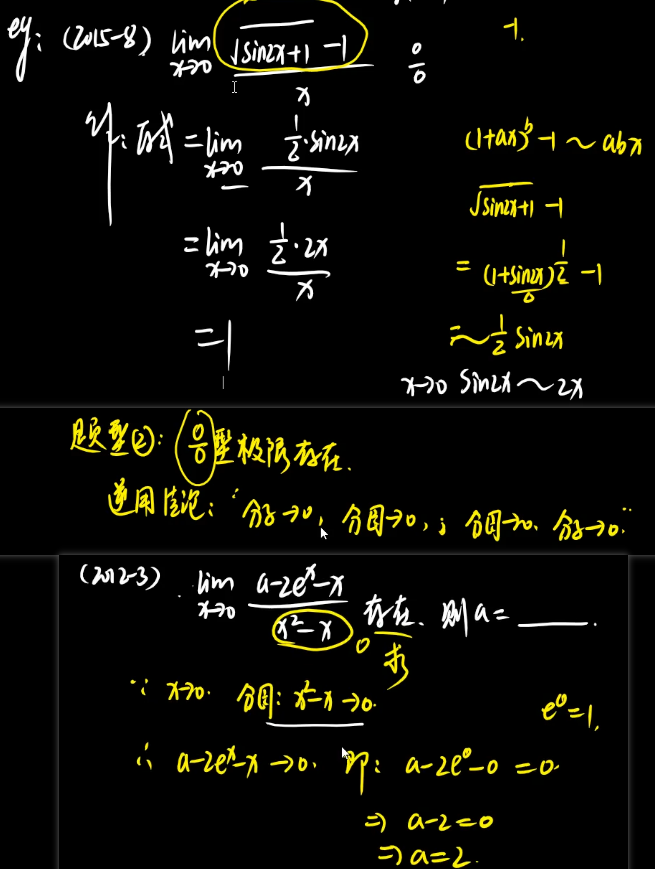 eg: (2015-8) lim x→0 (√(sin2x+1) -1)/x 0/0
-1.
解: 原式 = lim x→0 (1/2·sin2x)/x
(1+ax)^b -1 ~ abx
√(sin2x+1) -1
= lim x→0 (1/2·2x)/x
= (1+sin2x)^(1/2) -1
0
= 1
=~ 1/2 sin2x
x→0 sin2x ~ 2x
题型②: 0/0 型极限存在.
逆用结论: "分子→0, 分母→0, ; 分母→0、分子→0."
(2012-3) . lim x→0 (a-2e^x-x)/(x²-x) 存在. 则 a = ____.
0 求
∵ x→0. 分母: x²-x→0.
e^0=1.
∴ a-2e^x-x→0. 即: a-2e^0-0=0.
⇒ a-2=0
⇒ a=2.